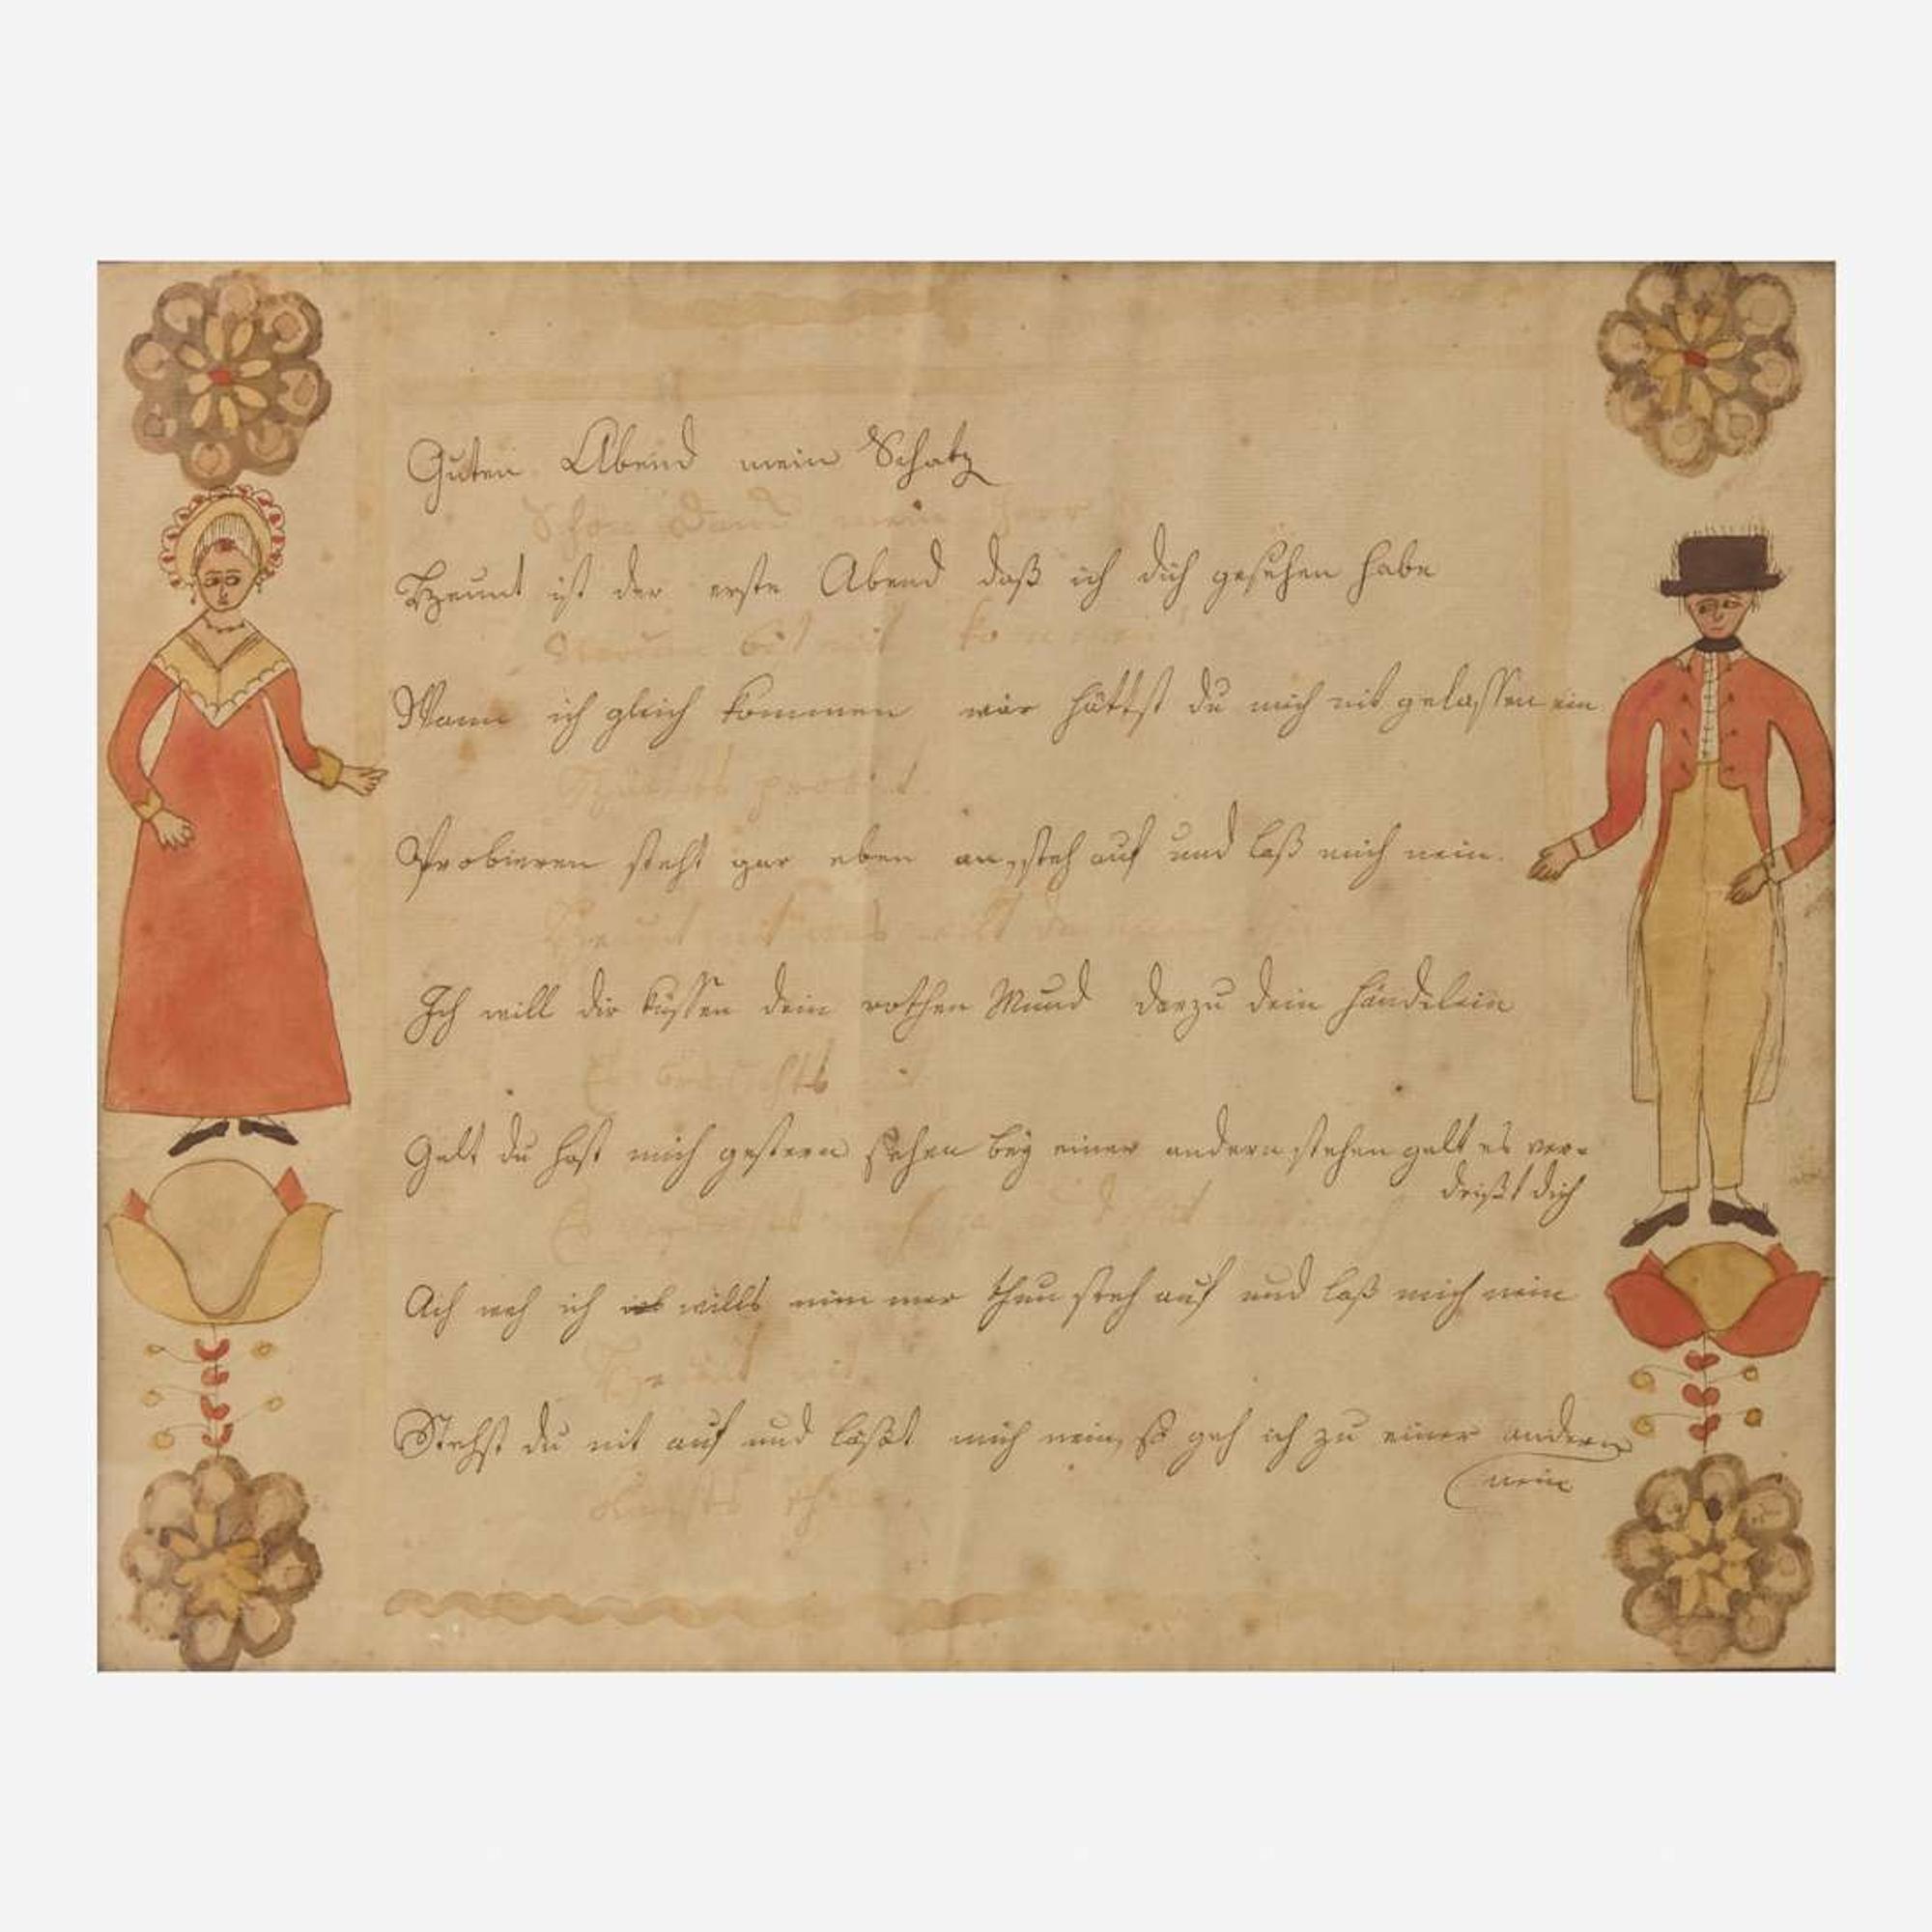 Guten Abend mein Schatz
Schön Dank mein Herr
Heunt ist der erste Abend daß ich dich gesehen habe
Warum bist nit kommen
Wann ich gleich kommen wär hättst du mich nit gelassen ein
probirt
Probieren steht gar eben an, steh auf und laß mich nein.
Heunt nit was wilt du
Ich will dir küssen dein rothen Mund darzu dein händelein
Gelt du hast mich gestern sehen bey einer andern stehen gelt es ver-
drißt dich
Es
Ach weh ich wills nim mer thun steh auf und laß mich nein
nit
Stehst du nit auf und läßst mich nein, so geh ich zu einer andern
nein